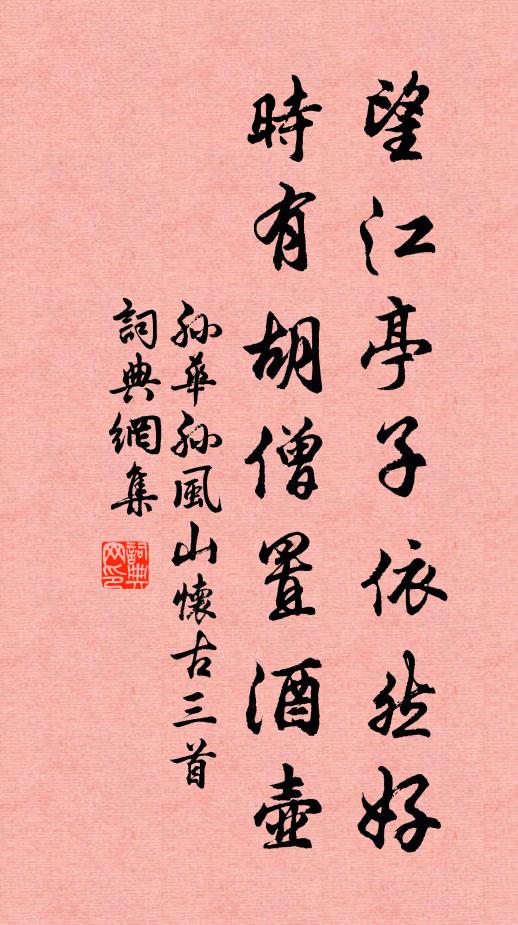 望江亭子依然好
時有胡僧置酒壺
孙華孙風山懷古三首
詞典網集
詞典网印